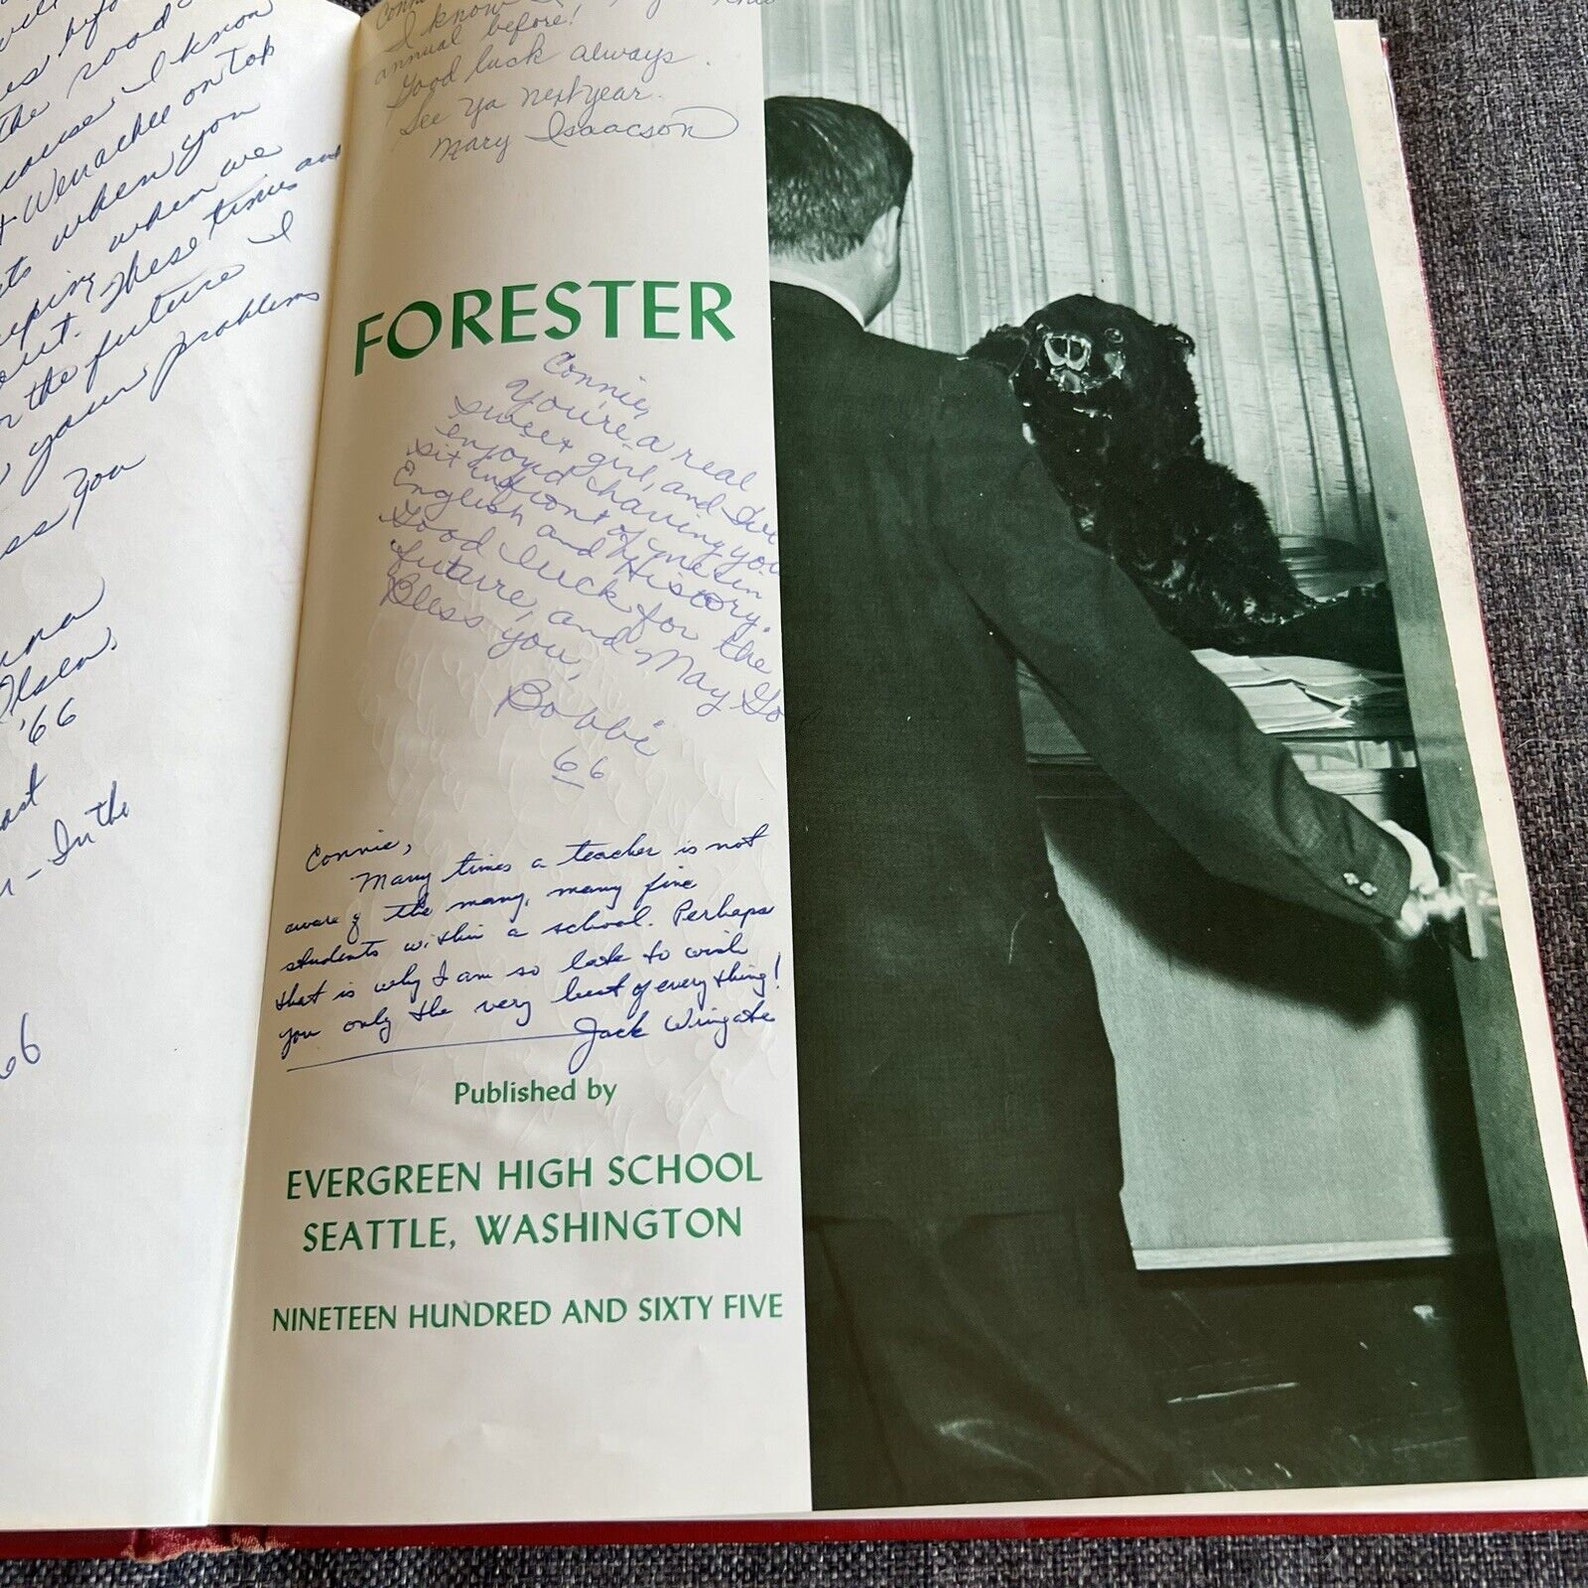 will
the road
because I know
Wenatchee on top
when you
when we
these times and
out.
the future I
your problems
You
Olsen
'66
- In the
66
I know
annual before!
Good luck always.
See ya next year.
Mary Isaacson
FORESTER
Connie,
You're a real
sweet girl, and I've
enjoyed having you
sit in front of me in
English and History.
Good luck for the
future, and May Go
Bless you,
Bobbi
66
Connie,
Many times a teacher is not
aware of the many, many fine
students within a school. Perhaps
that is why I am so late to wish
you only the very best of everything!
Jack Wingate
Published by
EVERGREEN HIGH SCHOOL
SEATTLE, WASHINGTON
NINETEEN HUNDRED AND SIXTY FIVE